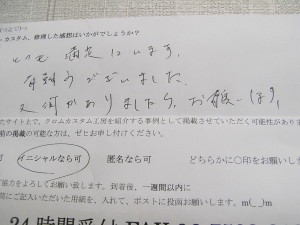 カスタム、修理した感想はいかがでしょうか?
とても満足しています。
有難うございました。
又何かありましたら、お願いします。
たサイト上で、クロムカスタム工房を紹介する事例として掲載させていただく可能性があります
前の掲載の可能な方は、ぜひお申し付けください。
イニシャルなら可 匿名なら可 どちらかに○印をお願いし
協力をよろしくお願い致します。到着後、一週間以内に
筒にご記入いただいた用紙を、入れて、ポストに投函お願いします。m(_ _)m
24時間受付 FAX